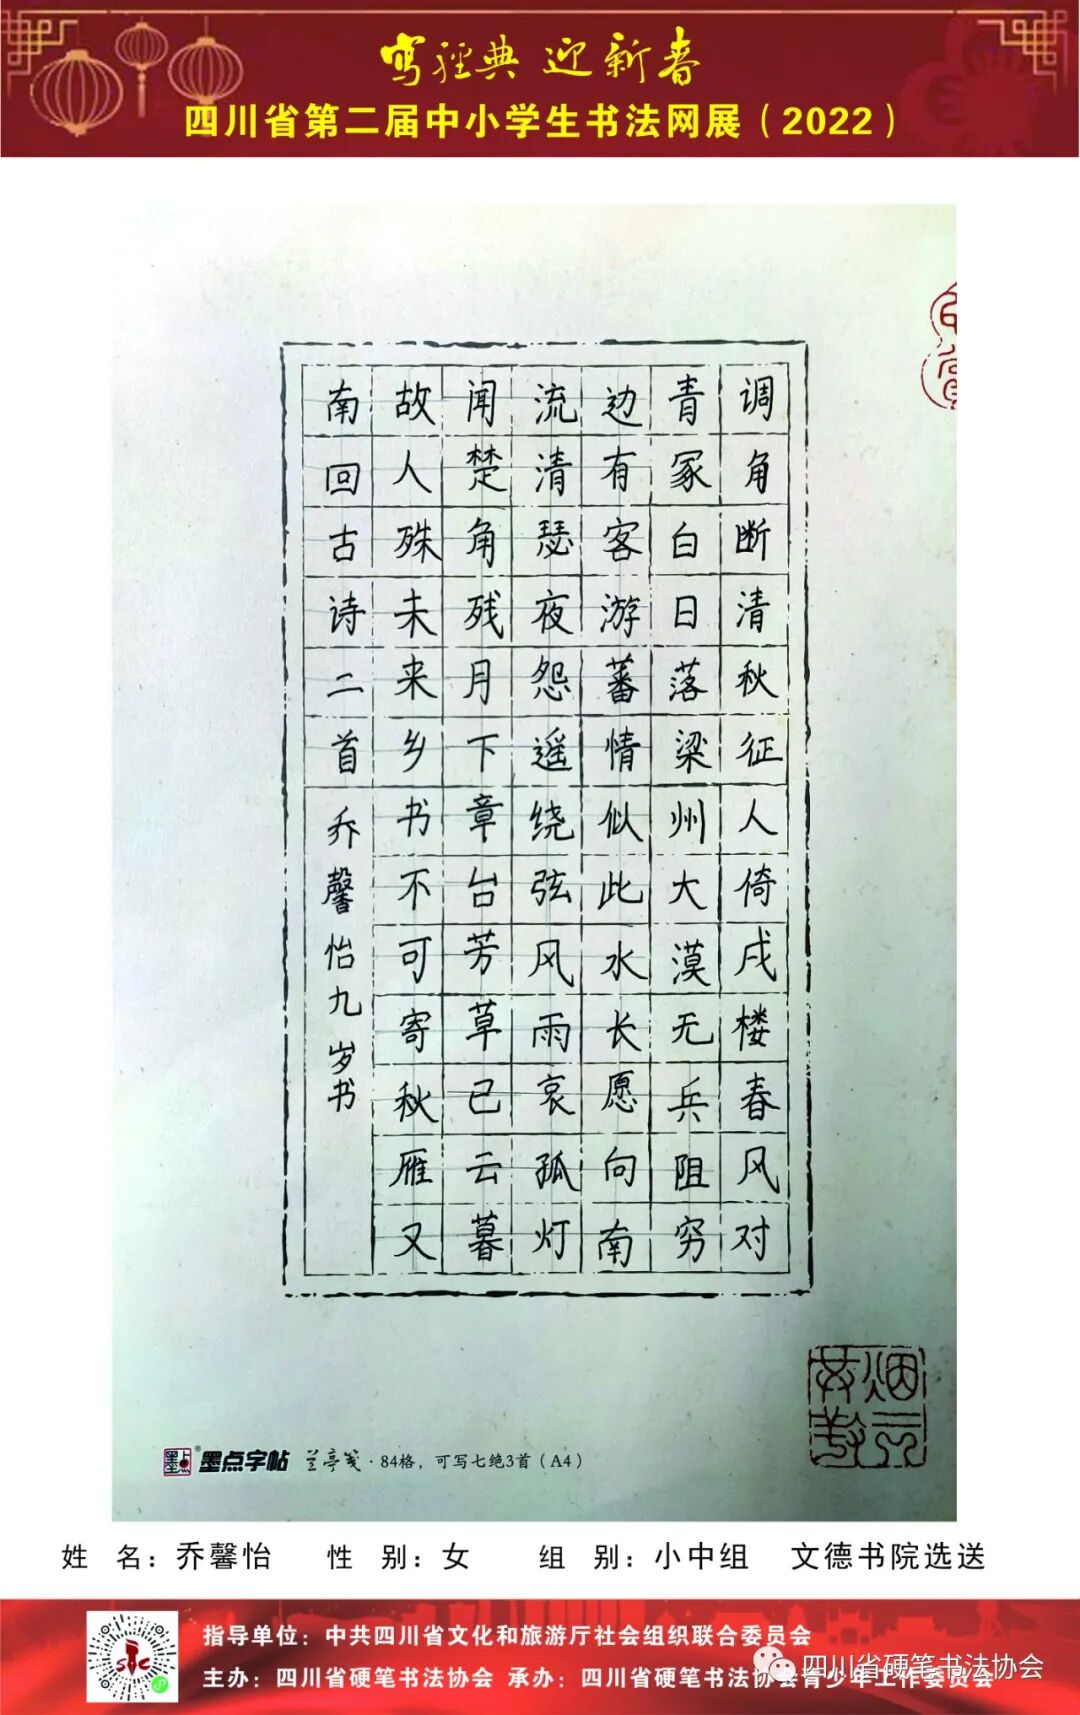 写经典 迎新春
四川省第二届中小学生书法网展（2022）
调角断清秋征人倚戍楼春风对
青冢白日落梁州大漠无兵阻穷
边有客游蕃情似此水长愿向南
流清瑟夜怨遥绕弦风雨哀孤灯
闻楚角残月下章台芳草已云暮
故人殊未来乡书不可寄秋雁又
南回古诗二首
乔馨怡九岁书
墨点字帖 兰亭笺·84格，可写七绝3首（A4）
姓 名：乔馨怡 性 别：女 组 别：小中组 文德书院选送
指导单位：中共四川省文化和旅游厅社会组织联合委员会
主办：四川省硬笔书法协会 承办：四川省硬笔书法协会青少年工作委员会
四川省硬笔书法协会